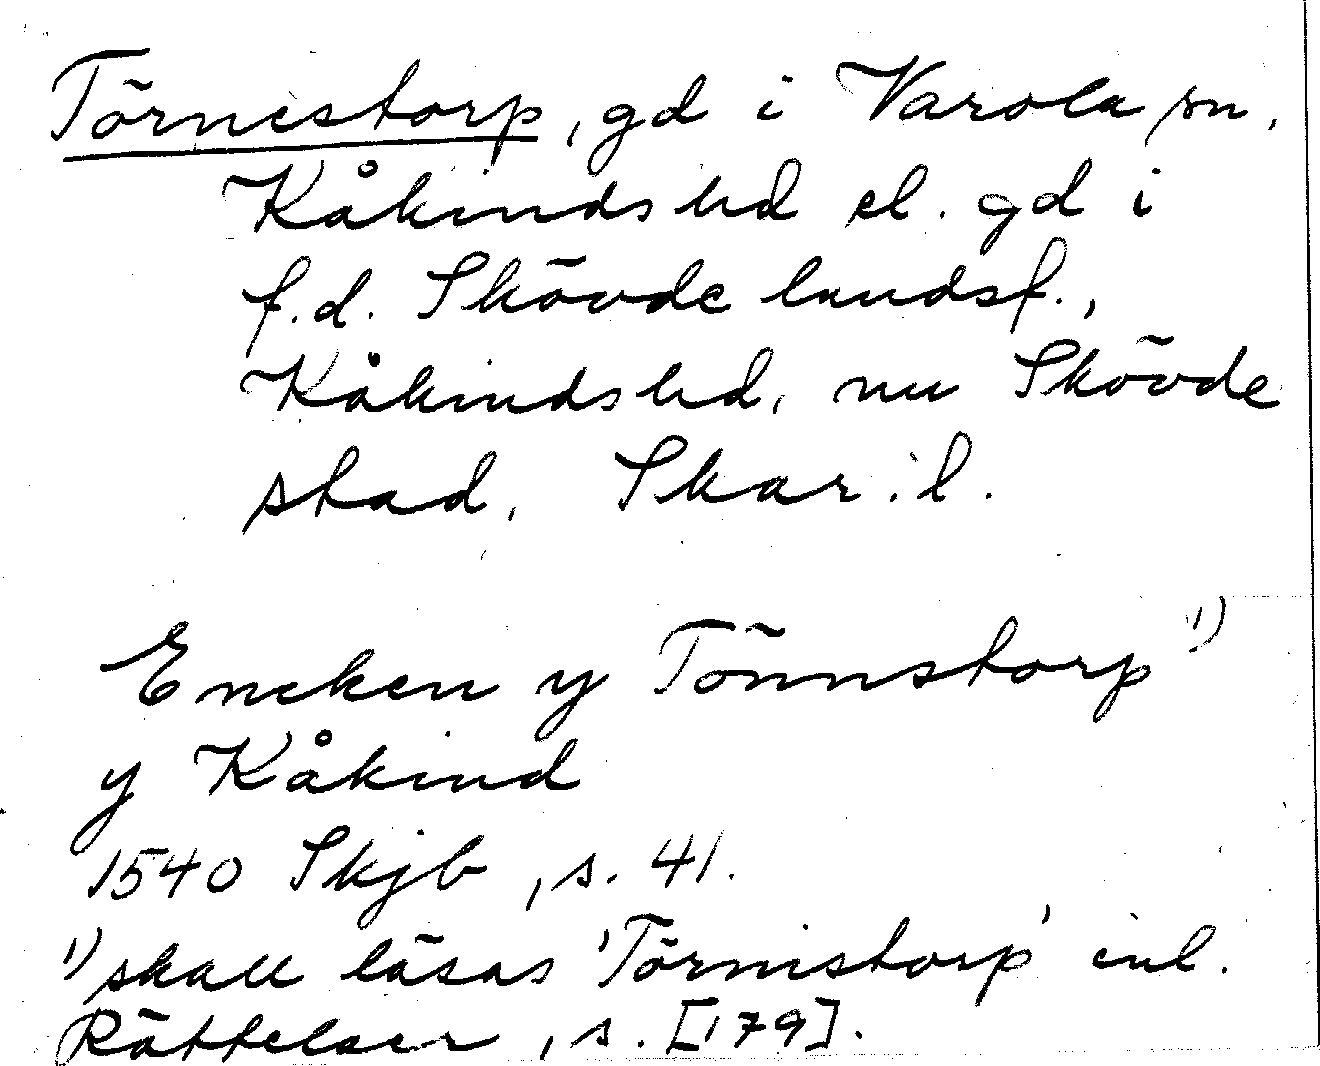 Törnestorp, gd i Varola sn,
Kåkinds hd el. gd i
f.d. Skövde landsf.,
Kåkinds hd, nu Skövde
stad, Skar. l.
Encken y Tönnstorp 1)
y Kåkind
1540 Skjb, s. 41.
1) skall läsas 'Törnistorp' enl.
Rättelser, s. [179].